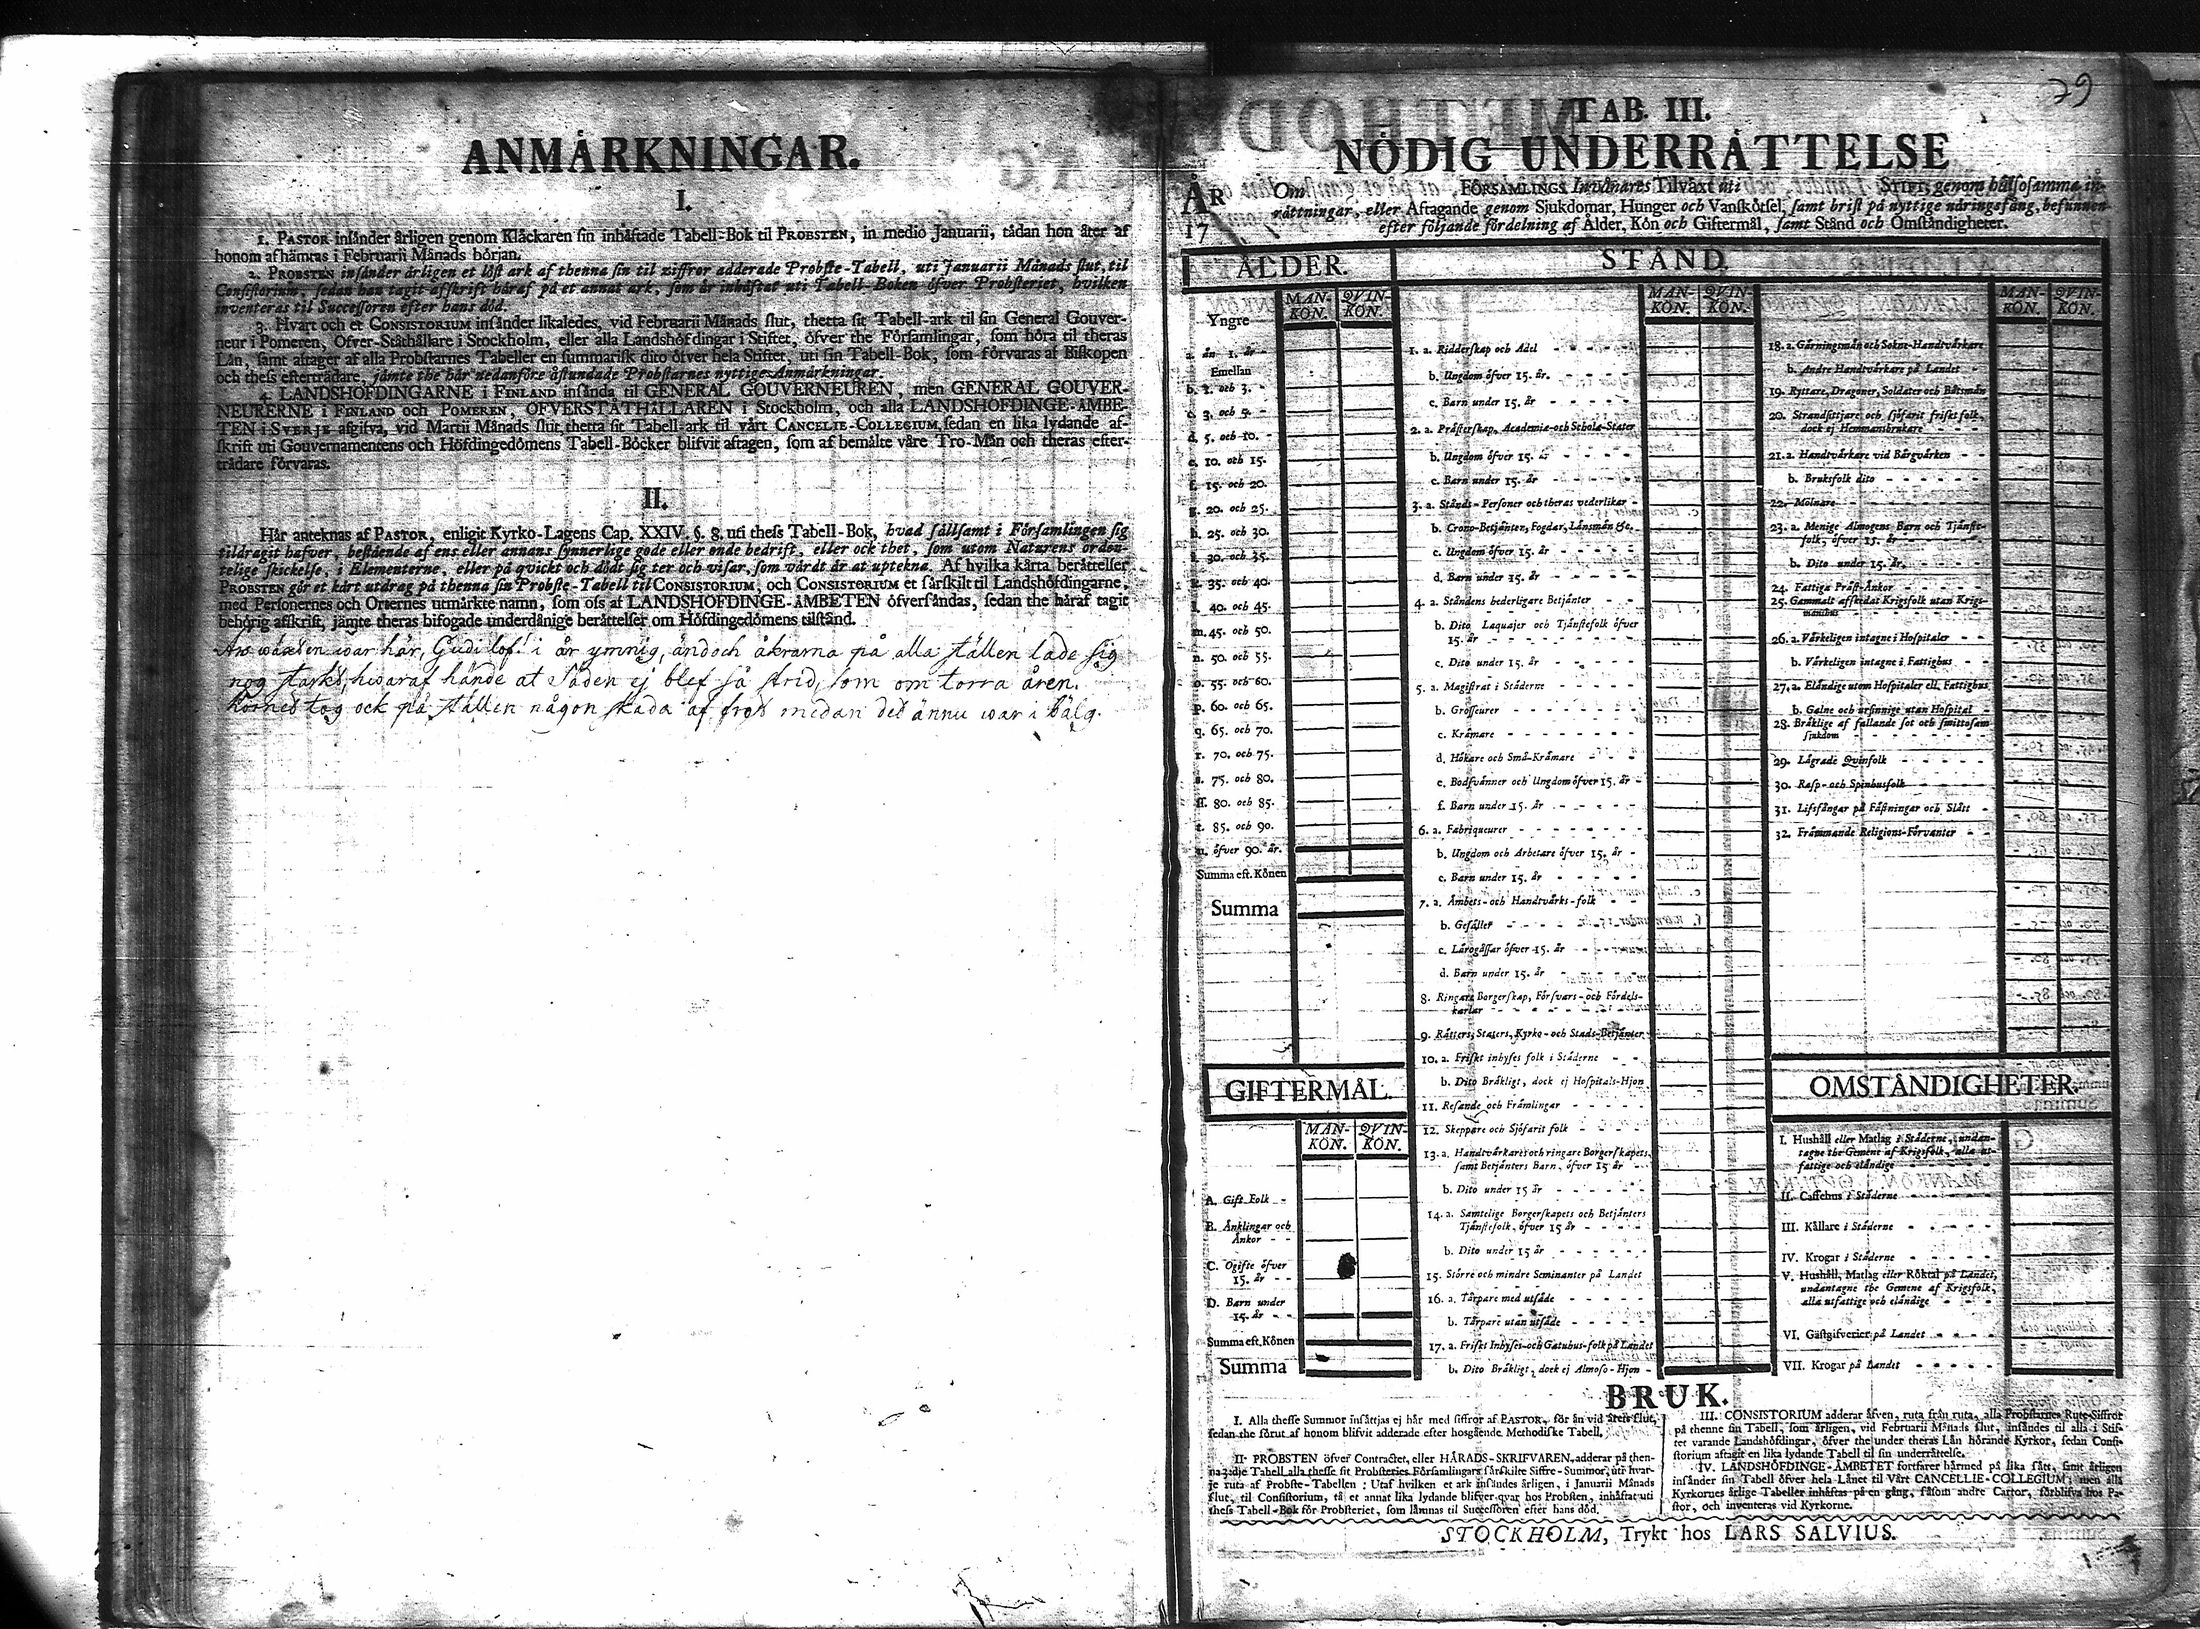 ANMÄRKNINGAR.
I.
1. PASTOR insänder årligen genom Klåckaren sin inhäftade Tabell-Bok til PROBSTEN, in medio Januarii, tådan hon åter af
honom afhämras i Februarii Månads början.
2. PROBSTEN insänder årligen et löst ark af thenna sin til ziffror adderade Probste-Tabell, uti Januarii Månads slut, til
Consistorium, sedan han tagit afskrift häraf på et annat ark, som är inhäftat uti Tabell-Boken öfver Probsteriet, hvilken
inventeras til Successoren efter hans död.
3. Hvart och et CONSISTORIUM insänder likaledes, vid Februarii Månads slut, thetta sit Tabell-ark til sin General Gouver-
neur i Pomeren, Öfver-Ståthållare i Stockholm, eller alla Landshöfdingar i Stiftet, öfver the Församlingar, som höra til theras
Län, samt aftager af alla Probstarnes Tabeller en summarisk dito öfver hela Stiftet, uti sin Tabell-Bok, som förvaras af Biskopen
och thess efterträdare, jämte the här nedanföre åstundade Probstarnes nyttige Anmärkningar.
4. LANDSHÖFDINGARNE i FINLAND insända til GENERAL GOUVERNEUREN, men GENERAL GOUVER-
NEURERNE i FINLAND och POMEREN, ÖFVERSTÅTHÅLLAREN i Stockholm, och alla LANDSHÖFDINGE-ÄMBE-
TEN i SVERJE afgifva, vid Martii Månads slut, thetta sit Tabell-ark til vårt CANCELIE-COLLEGIUM, sedan en lika lydande af-
skrift uti Gouvernamentens och Höfdingedömens Tabell-Böcker blifvit aftagen, som af bemälte våre Tro-Män och theras efter-
trädare förvaras.
II.
Här anteknas af PASTOR, enligit Kyrko-Lagens Cap. XXIV. §. 8. uti thess Tabell-Bok, hvad sällsamt i Församlingen sig
tildragit hafver, bestående af ens eller annans synnerlige gode eller onde bedrift, eller ock thet, som utom Naturens orden-
telige skickelse, i Elementerne, eller på qvickt och dödt sig ter och visar, som värdt är at uptekna. Af hvilka kårta berättelser
PROBSTEN gör et kårt utdrag på thenna sin Probste-Tabell til CONSISTORIUM, och CONSISTORIUM et särskilt til Landshöfdingarne,
med Personernes och Orternes utmärkte namn, som oss af LANDSHÖFDINGE-ÄMBETEN öfversändas, sedan the häraf tagit
behörig afskrift, jämte theras bifogade underdånige berättelser om Höfdingedömens tilstånd.
Års wäxten war här, Gudi lof! i år ymnig, ändoch åkrarna på alla ställen lade sig
nog starkt, hwaraf hände at Säden ej blef så strid, som om torra åren.
Kornet tog ock på ställen någon skada af frost medan det ännu war i bälg.
79
TAB. III.
NÖDIG UNDERRÄTTELSE
ÅR
17
Om FÖRSAMLINGS Invånares Tilväxt uti STIFT, genom hälsosamma in-
rättningar, eller Aftagande genom Sjukdomar, Hunger och Vanskötsel, samt brist på nyttige näringsfång, befunnen
efter följande fördelning af Ålder, Kön och Giftermål, samt Stånd och Omständigheter.
ÅLDER.
MAN-KÖN. QVIN-KÖN.
Yngre
a. än 1. år
Emellan
b. 1. och 3.
c. 3. och 5.
d. 5. och 10.
e. 10. och 15.
f. 15. och 20.
g. 20. och 25.
h. 25. och 30.
i. 30. och 35.
k. 35. och 40.
l. 40. och 45.
m. 45. och 50.
n. 50. och 55.
o. 55. och 60.
p. 60. och 65.
q. 65. och 70.
r. 70. och 75.
s. 75. och 80.
ſſ. 80. och 85.
t. 85. och 90.
u. öfver 90. år.
Summa eft. Könen
Summa
GIFTERMÅL.
MAN-KÖN. QVIN-KÖN.
A. Gift Folk
B. Änklingar och
Änkor
C. Ogifte öfver
15. år
D. Barn under
15. år
Summa eft. Könen
Summa
STÅND.
MAN-KÖN. QVIN-KÖN.
1. a. Ridderskap och Adel
b. Ungdom öfver 15. år.
c. Barn under 15. år
2. a. Prästerskap, Academiæ- och Scholæ-Stater
b. Ungdom öfver 15. år
c. Barn under 15. år
3. a. Stånds-Personer och theras vederlikar
b. Crono-Betjänten, Fogdar, Länsmän &c.
c. Ungdom öfver 15. år
d. Barn under 15. år
4. a. Ståndens hederligare Betjänter
b. Dito Laquajer och Tjänstefolk öfver
15. år
c. Dito under 15. år
5. a. Magistrat i Städerne
b. Grosseurer
c. Krämare
d. Hökare och Små-Krämare
e. Bodsvänner och Ungdom öfver 15. år
f. Barn under 15. år
6. a. Fabriqueurer
b. Ungdom och Arbetare öfver 15. år
c. Barn under 15. år
7. a. Ämbets- och Handtvärks-folk
b. Gesäller
c. Lärogåssar öfver 15. år
d. Barn under 15. år
8. Ringare Borgerskap, Försvars- och Fördels-
karlar
9. Rätters, Staters, Kyrko- och Stads-Betjänter
10. a. Friskt inhyses folk i Städerne
b. Dito Bräkligt, dock ej Hospitals-Hjon
11. Resande och Främlingar
12. Skeppare och Sjöfarit folk
13. a. Handtvärkares och ringare Borgerskapets,
samt Betjänters Barn, öfver 15 år
b. Dito under 15 år
14. a. Samtelige Borgerskapets och Betjänters
Tjänstefolk, öfver 15 år
b. Dito under 15 år
15. Större och mindre Seminanter på Landet
16. a. Tårpare med utsäde
b. Tårpare utan utsäde
17. a. Friskt Inhyses- och Gatuhus-folk på Landet
b. Dito Bräkligt, dock ej Almoso-Hjon
MAN-KÖN. QVIN-KÖN.
18. a. Gärningsmän och Sokne-Handtvärkare
b. Andre Handtvärkare på Landet
19. Ryttare, Dragoner, Soldater och Båtsmän
20. Strandsittjare och sjöfarit friskt folk,
dock ej Hemmansbrukare
21. a. Handtvärkare vid Bärgvärken
b. Bruksfolk dito
22. Mölnare
23. a. Menige Almogens Barn och Tjänste-
folk, öfver 15. år
b. Dito under 15. år.
24. Fattiga Präst-Änkor
25. Gammalt afskedat Krigsfolk utan Krigs-
manshus
26. a. Värkeligen intagne i Hospitaler
b. Värkeligen intagne i Fattighus
27. a. Eländige utom Hospitaler ell. Fattighus
b. Galne och ursinnige utan Hospital
28. Bräklige af fallande sot och smittosam
sjukdom
29. Lägrade Qvinfolk
30. Rasp- och Spinhusfolk
31. Lifsfångar på Fästningar och Slått
32. Främmande Religions-Förvanter
OMSTÄNDIGHETER.
I. Hushåll eller Matlag i Städerne, undan-
tagne the Gemene af Krigsfolk, alla ut-
fattige och eländige
II. Caffehus i Städerne
III. Källare i Städerne
IV. Krogar i Städerne
V. Hushåll, Matlag eller Röktal på Landet,
undantagne the Gemene af Krigsfolk,
alla utfattige och eländige
VI. Gästgifverier på Landet
VII. Krogar på Landet
BRUK.
I. Alla thesse Summor insättjas ej här med siffror af PASTOR, för än vid årets slut,
sedan the förut af honom blifvit adderade efter hosgående Methodiske Tabell.
II. PROBSTEN öfver Contractet, eller HÄRADS-SKRIFVAREN, adderar på then-
na 3:dje Tabell alla thesse sit Probsteries Församlingars särskilte Siffre-Summor, uti hvar-
je ruta af Probste-Tabellen: Utaf hvilken et ark insändes årligen, i Januarii Månads
slut, til Consistorium, tå et annat lika lydande blifver qvar hos Probsten, inhäftat uti
thess Tabell-Bok för Probsteriet, som lämnas til Successoren efter hans död.
III. CONSISTORIUM adderar äfven, ruta från ruta, alla Probstarnes Rute-Siffror
på thenne sin Tabell, som årligen, vid Februarii Månads slut, insändes til alla i Stif-
tet varande Landshöfdingar, öfver the under theras Län hörande Kyrkor, sedan Consi-
storium aftagit en lika lydande Tabell til sin underrättelse.
IV. LANDSHÖFDINGE-ÄMBETET fortfarer härmed på lika sätt, samt årligen
insänder sin Tabell öfver hela Länet til Vårt CANCELLIE-COLLEGIUM; men alla
Kyrkornes årlige Tabeller inhäftas på en gång, såsom andre Cartor, förblifva hos Pa-
stor, och inventeras vid Kyrkorne.
STOCKHOLM, Trykt hos LARS SALVIUS.